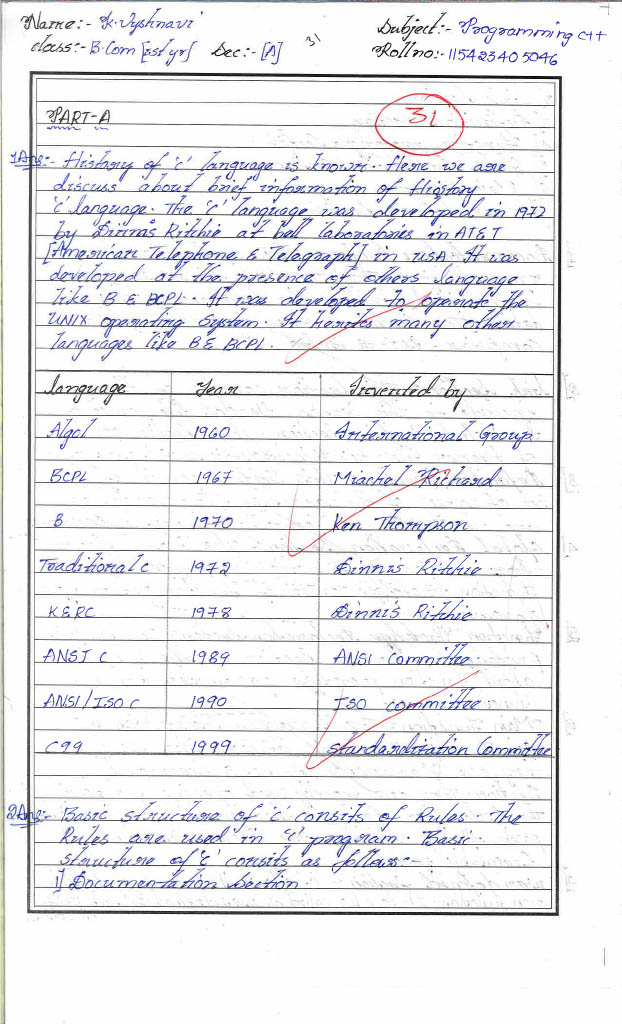 Name:- K. Vyshnavi
Subject:- Programming C++
class:- B.Com [1st yr] Sec:- [A]
31
Roll no:- 115423405046
PART-A
31
1Ans:- History of 'c' language is known. Here we are
discuss about brief information of History
'c' language. The 'c' language was developed in 1972
by Dinnis Ritchie at bell laboratories in AT&T
[American Telephone & Telegraph] in USA. It was
developed at the presence of others language
like B & BCPL. It was developed to operate the
UNIX operating System. It herites many other
languages like B & BCPL.
language Year Invented by
Algol 1960 International Group
BCPL 1967 Miachel Richard
B 1970 Ken Thompson
Traditional C 1972 Dinnis Ritchie
K&RC 1978 Dinnis Ritchie
ANSI C 1989 ANSI Committee
ANSI/ISO C 1990 ISO committee
C99 1999 Standardization Committee
2Ans:- Basic structure of 'c' consits of Rules. The
Rules are used in 'c' program. Basic
structure of 'c' consits as follows:-
1] Documentation Section